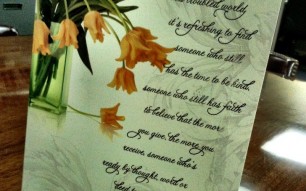 troubled world,
it's refreshing to find
someone who still
has the time to be kind.
someone who still has faith
to believe that the more
you give, the more you
receive, someone who's
ready by thought, word or